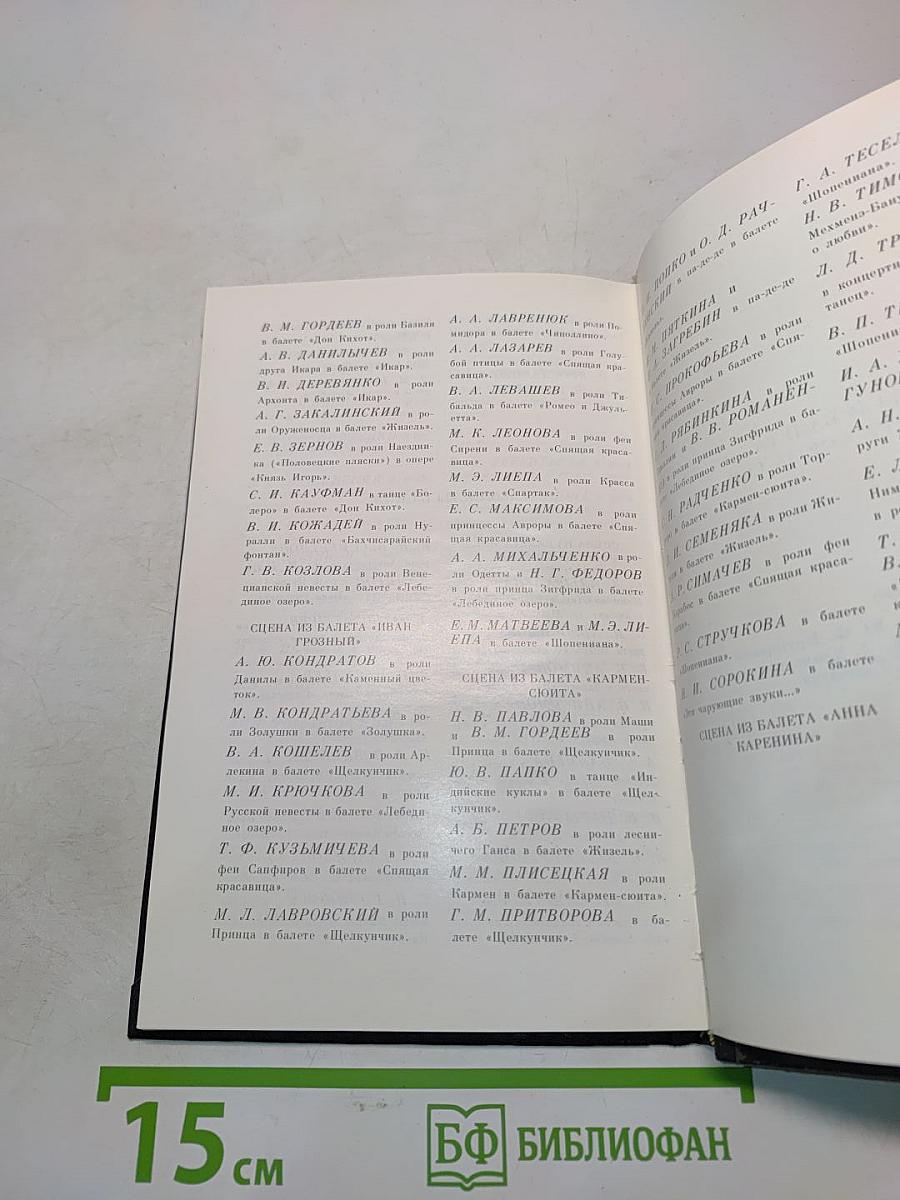 В. М. ГОРДЕЕВ в роли Базиля
в балете «Дон Кихот».
А. В. ДАНИЛЫЧЕВ в роли
друга Икара в балете «Икар».
В. И. ДЕРЕВЯНКО в роли
Архонта в балете «Икар».
А. Г. ЗАКАЛИНСКИЙ в ро-
ли Оруженосца в балете «Жизель».
Е. В. ЗЕРНОВ в роли Наездни-
ка («Половецкие пляски») в опере
«Князь Игорь».
С. И. КАУФМАН в танце «Бо-
леро» в балете «Дон Кихот».
В. И. КОЖАДЕЙ в роли Ну-
ралли в балете «Бахчисарайский
фонтан».
Г. В. КОЗЛОВА в роли Вене-
цианской невесты в балете «Лебе-
диное озеро».
СЦЕНА ИЗ БАЛЕТА «ИВАН
ГРОЗНЫЙ»
А. Ю. КОНДРАТОВ в роли
Данилы в балете «Каменный цве-
ток».
М. В. КОНДРАТЬЕВА в ро-
ли Золушки в балете «Золушка».
В. А. КОШЕЛЕВ в роли Ар-
лекина в балете «Щелкунчик».
М. И. КРЮЧКОВА в роли
Русской невесты в балете «Лебеди-
ное озеро».
Т. Ф. КУЗЬМИЧЕВА в роли
феи Сапфиров в балете «Спящая
красавица».
М. Л. ЛАВРОВСКИЙ в роли
Принца в балете «Щелкунчик».
А. А. ЛАВРЕНЮК в роли По-
мидора в балете «Чиполлино».
А. А. ЛАЗАРЕВ в роли Голу-
бой птицы в балете «Спящая кра-
савица».
В. А. ЛЕВАШЕВ в роли Ти-
бальда в балете «Ромео и Джуль-
етта».
М. К. ЛЕОНОВА в роли феи
Сирени в балете «Спящая краса-
вица».
М. Э. ЛИЕПА в роли Красса
в балете «Спартак».
Е. С. МАКСИМОВА в роли
принцессы Авроры в балете «Спя-
щая красавица».
А. А. МИХАЛЬЧЕНКО в ро-
ли Одетты и Н. Г. ФЕДОРОВ
в роли принца Зигфрида в балете
«Лебединое озеро».
Е. М. МАТВЕЕВА и М. Э. ЛИ-
ЕПА в балете «Шопениана».
СЦЕНА ИЗ БАЛЕТА «КАРМЕН-
СЮИТА»
Н. В. ПАВЛОВА в роли Маши
и В. М. ГОРДЕЕВ в роли
Принца в балете «Щелкунчик».
Ю. В. ПАПКО в танце «Ин-
дийские куклы» в балете «Щел-
кунчик».
А. Б. ПЕТРОВ в роли лесни-
чего Ганса в балете «Жизель».
М. М. ПЛИСЕЦКАЯ в роли
Кармен в балете «Кармен-сюита».
Г. М. ПРИТВОРОВА в ба-
лете «Щелкунчик».
ПОПКО и О. Д. РАЧ-
в па-де-де в балете
ПЯТКИНА и
ЗАГРЕБИН в па-де-де
«Жизель».
ПРОКОФЬЕВА в роли
Авроры в балете «Спя-
красавица».
РЯБИНКИНА в роли
и В. В. РОМАНЕН-
в роли принца Зигфрида в ба-
«Лебединое озеро».
РАДЧЕНКО в роли Тор-
в балете «Кармен-сюита».
И. СЕМЕНЯКА в роли Жи-
в балете «Жизель».
Р. СИМАЧЕВ в роли феи
в балете «Спящая краса-
С. СТРУЧКОВА в балете
«Шопениана».
Н. И. СОРОКИНА в балете
«Эти чарующие звуки...»
СЦЕНА ИЗ БАЛЕТА «АННА
КАРЕНИНА»
Г. А. ТЕСЕЛ
«Шопениана».
Н. В. ТИМО
Мехменэ-Бану
о любви».
Л. Д. ТР
в концертн
танец».
В. П. Т
«Шопени
И. А.
ГУНО
А. Н.
руги
Е. Л
Ним
в р
Т.
В.
15 см
БФ БИБЛИОФАН